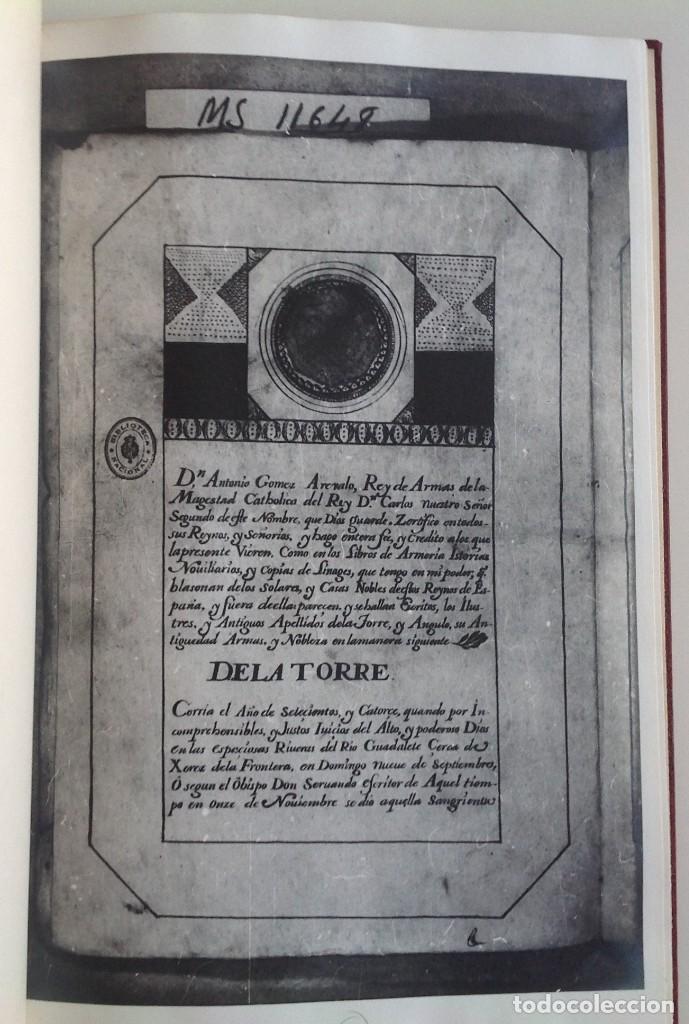 MS 11648
BIBLIOTECA NACIONAL
D.ⁿ Antonio Gomez Arevalo, Rey de Armas de la
Magestad Catholica del Rey D.ⁿ Carlos nuestro Señor
Segundo de este Nombre, que Dios guarde. Zertifico en todos
sus Reynos, y Señorios, y hago entera fee, y Credito a los que
la presente Vieren. Como en los Libros de Armeria Istorias
Nouiliarios, y Copias de Linages, que tengo en mi poder, q.ᵉ
blasonan de los Solares, y Casas Nobles de estos Reynos de Es-
paña, y fuera de ella parecen, y se hallan Escritos, los Ilus-
tres, y Antiguos Apellidos de la Torre, y Angulo, su An-
tiguedad Armas, y Nobleza en la manera siguiente
DE LA TORRE.
Corria el Año de Setecientos, y Catorce, quando por In-
comprehensibles, y Justos Iuicios del Alto, y poderoso Dios
en las espaciosas Riueras del Rio Guadalete Cerca de
Xerez de la Frontera, en Domingo nueue de Septiembre,
O segun el Obispo Don Seruando escritor de Aquel tiem-
po en onze de Nouiembre se dio aquella Sangrienta
todocoleccion